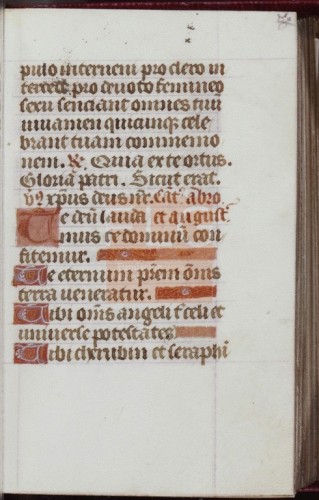 pulo interueni pro clero in
tercede pro deuoto femineo
sexu senciant omnes tuu
iuuamen quicunq; cele
brant tuam commemo
nem. &. Quia ex te ortus.
Gloria patri. Sicut erat.
xpūs deus nr̄. Cāt. abro
Te deū lauda et august.
mus te dominū con
fitemur.
Te eternum prēm om̄s
terra ueneratur.
Tibi om̄s angeli t celi et
uniuerse potestates
Tibi cherubin et seraphi